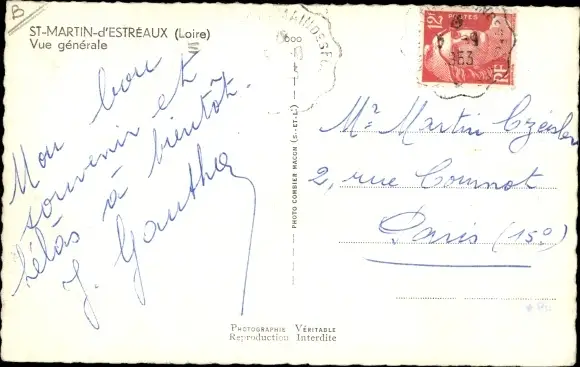 B
ST-MARTIN-d'ESTRÉAUX (Loire)
Vue générale
Mon bon
souvenir et
hélas à bientôt.
J. Gauthier
PHOTO COMBIER MACON (S.-ET-L.)
PHOTOGRAPHIE VÉRITABLE
Reproduction Interdite
12F
POSTES
RF
Mr Martin
2, rue Cournot
Paris (15e)